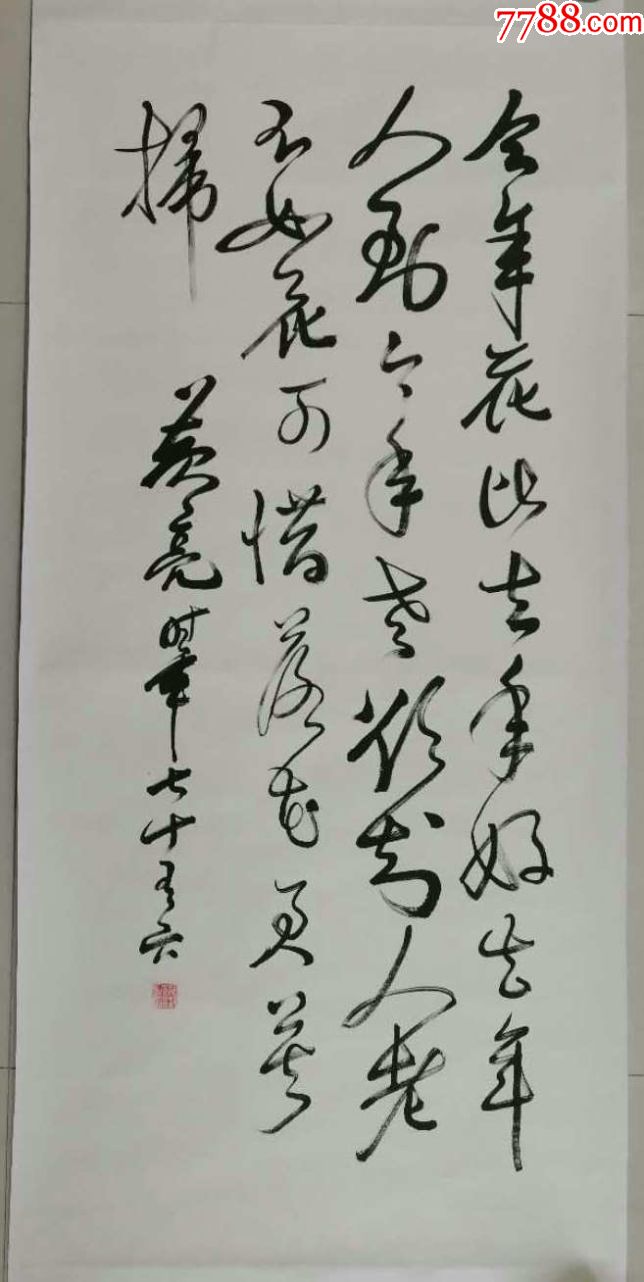 7788.com
今年花比去年好去年
人到今年老知人老
不如花可惜落花君莫
掃
黄亮時年七十有六